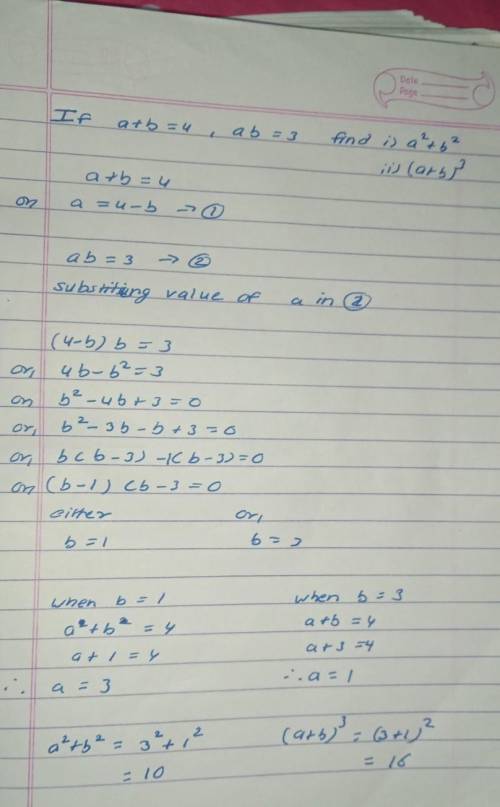 Date
Page
If a+b=4, ab=3 find i) a²+b²
ii) (a+b)³
a+b=4
or a=4-b → ①
ab=3 → ②
substituting value of a in ②
(4-b) b = 3
or, 4b-b²=3
or b²-4b+3=0
or, b²-3b-b+3=0
or, b(b-3) -1(b-3)=0
or (b-1) (b-3=0
either or,
b=1 b=3
when b=1 when b=3
a²+b²=4 a+b=4
a+1=4 a+3=4
∴ a=3 ∴ a=1
a²+b² = 3²+1² (a+b)³ = (3+1)²
= 10 = 16